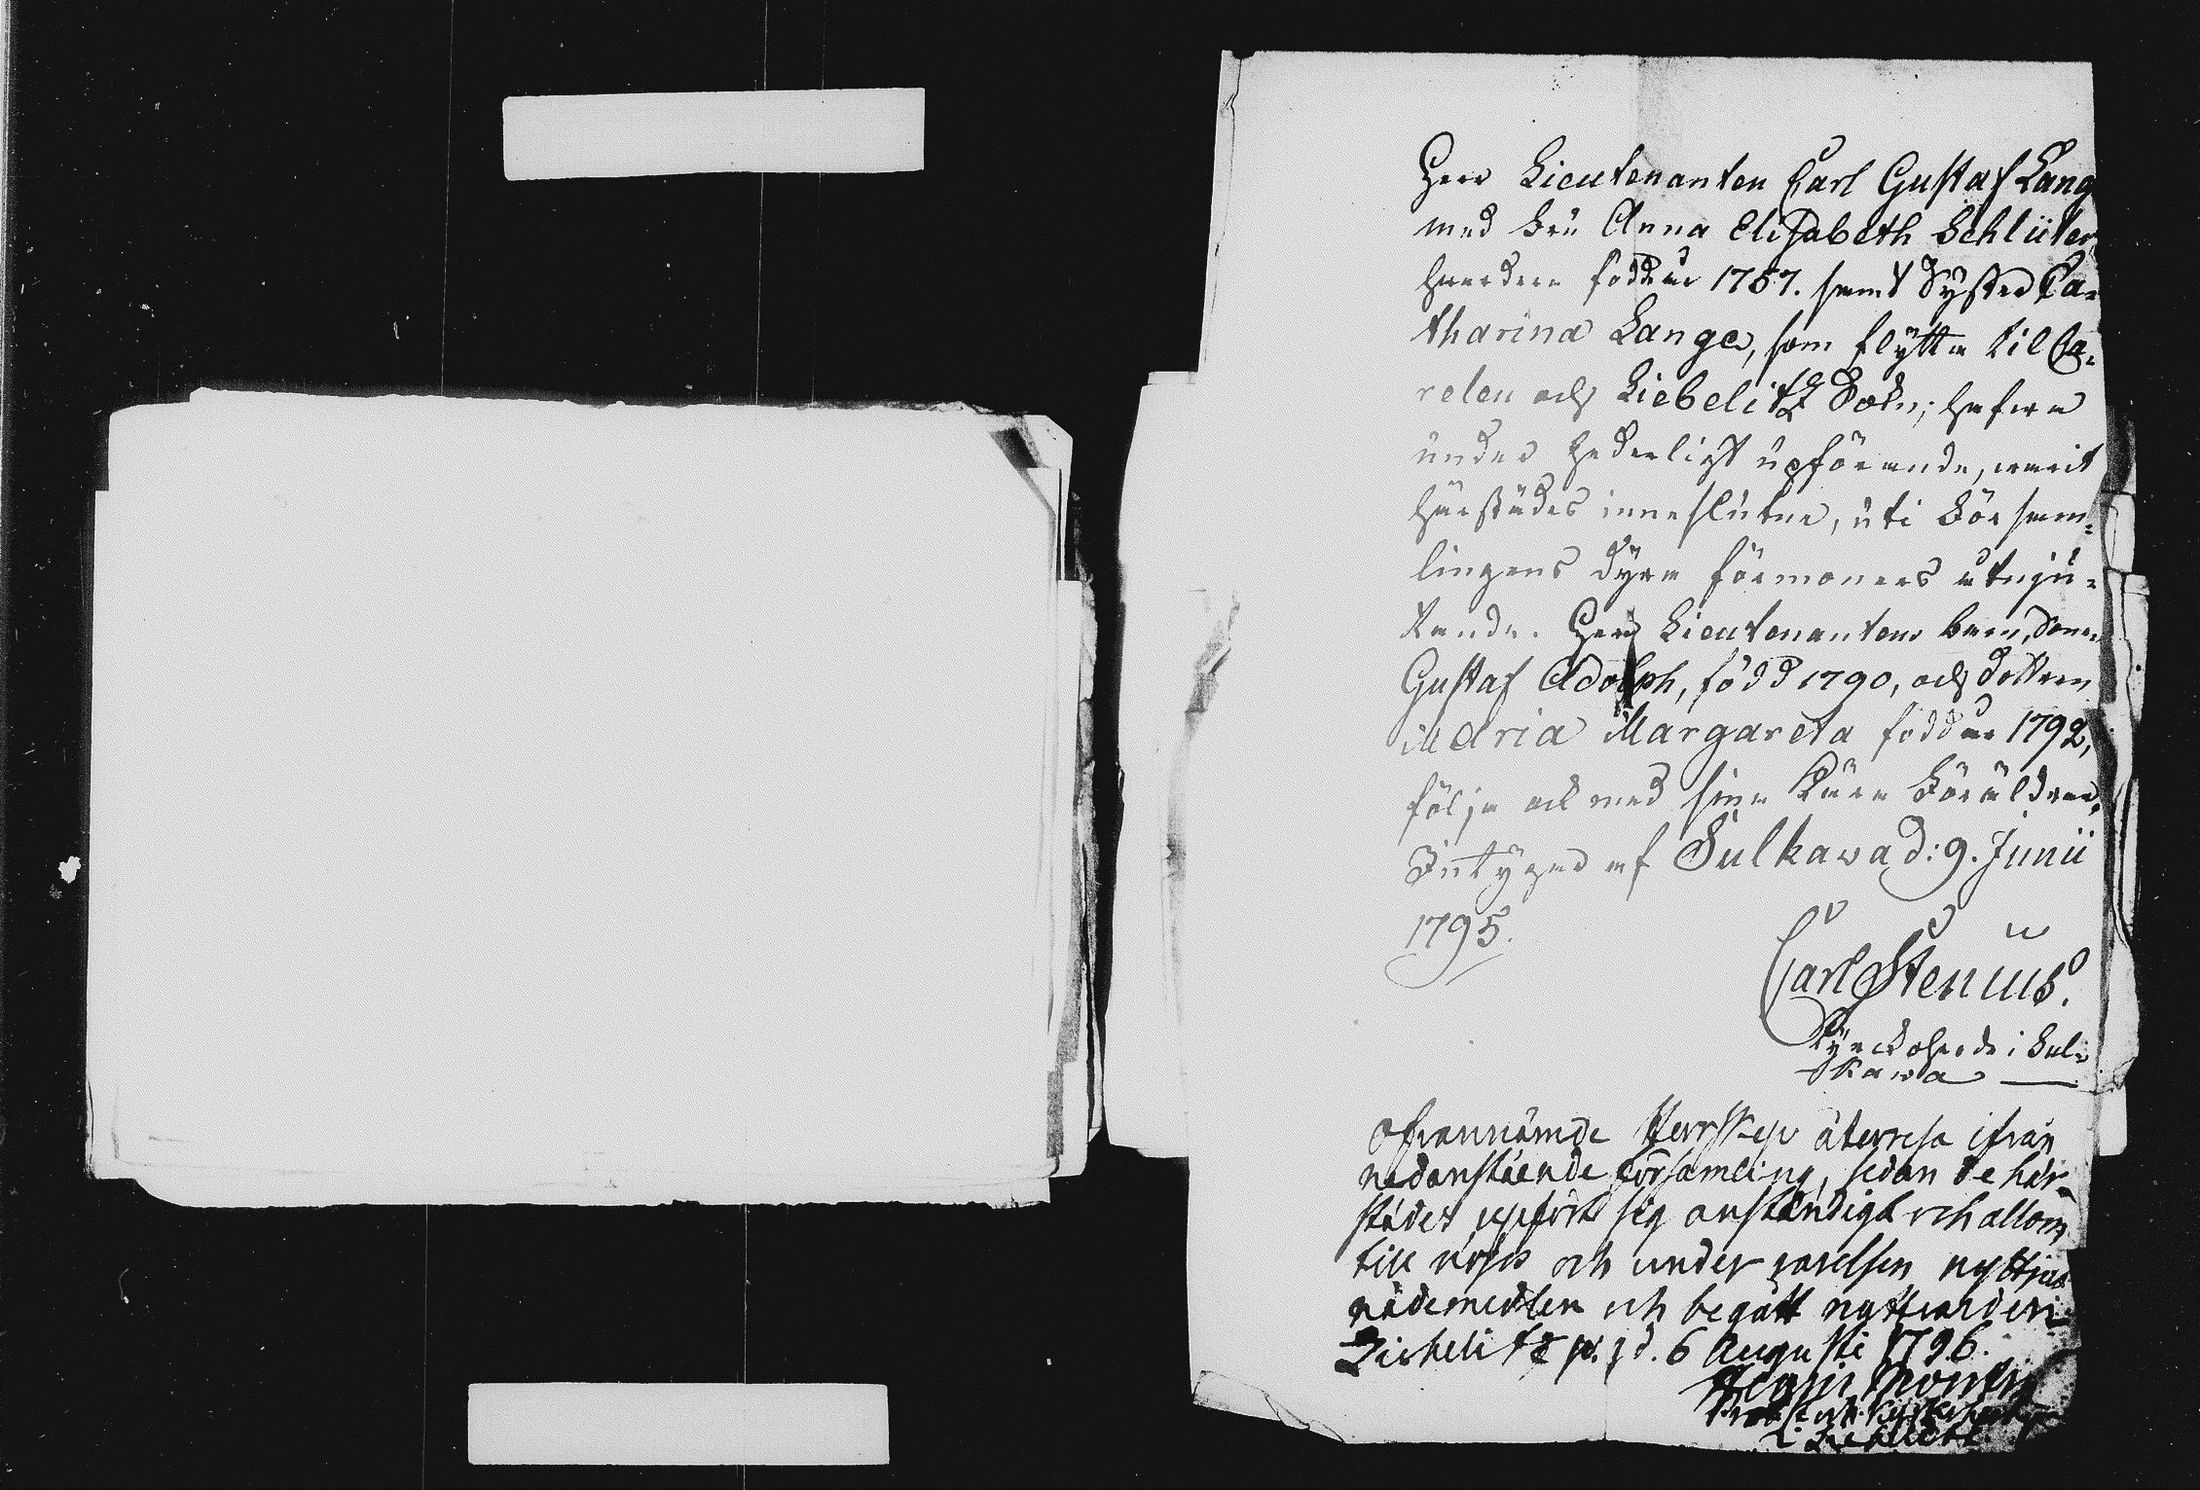 Herr Lieutenanten Carl Gustaf Lang
med Fru Anna Elisabeth Schlüter,
hvardera födde 1757. samt Syster Ca-
tharina Lange, som flÿtta til Ca-
relen och Liebelitz Sokn, hafva
under hederligt upförande, warit
härstädes inneslutne, uti Försam-
lingens dÿra förmoners utnju-
tande. Herr Lieutenantens barn, Sonen
Gustaf Adolph, född 1790, och dottren
Maria Margareta född 1792,
följa ock med sina kära Föräldrar.
Intÿgas af Sulkava d: 9. Junii
1795.
Carl Stenius.
Kÿrckoherde i Sul-
kawa
Ofvannämde Herrskap återresa ifrån
nedanstående församling, sedan de här-
städes upfört sig anständigt och allom
till nöjes och under varelsen nyttjat
nådemedlen och begått nattvarden
Liebelitz p. g. d. 6 Augusti 1796.
Prost och Kyrkoherde
i Liebelitz